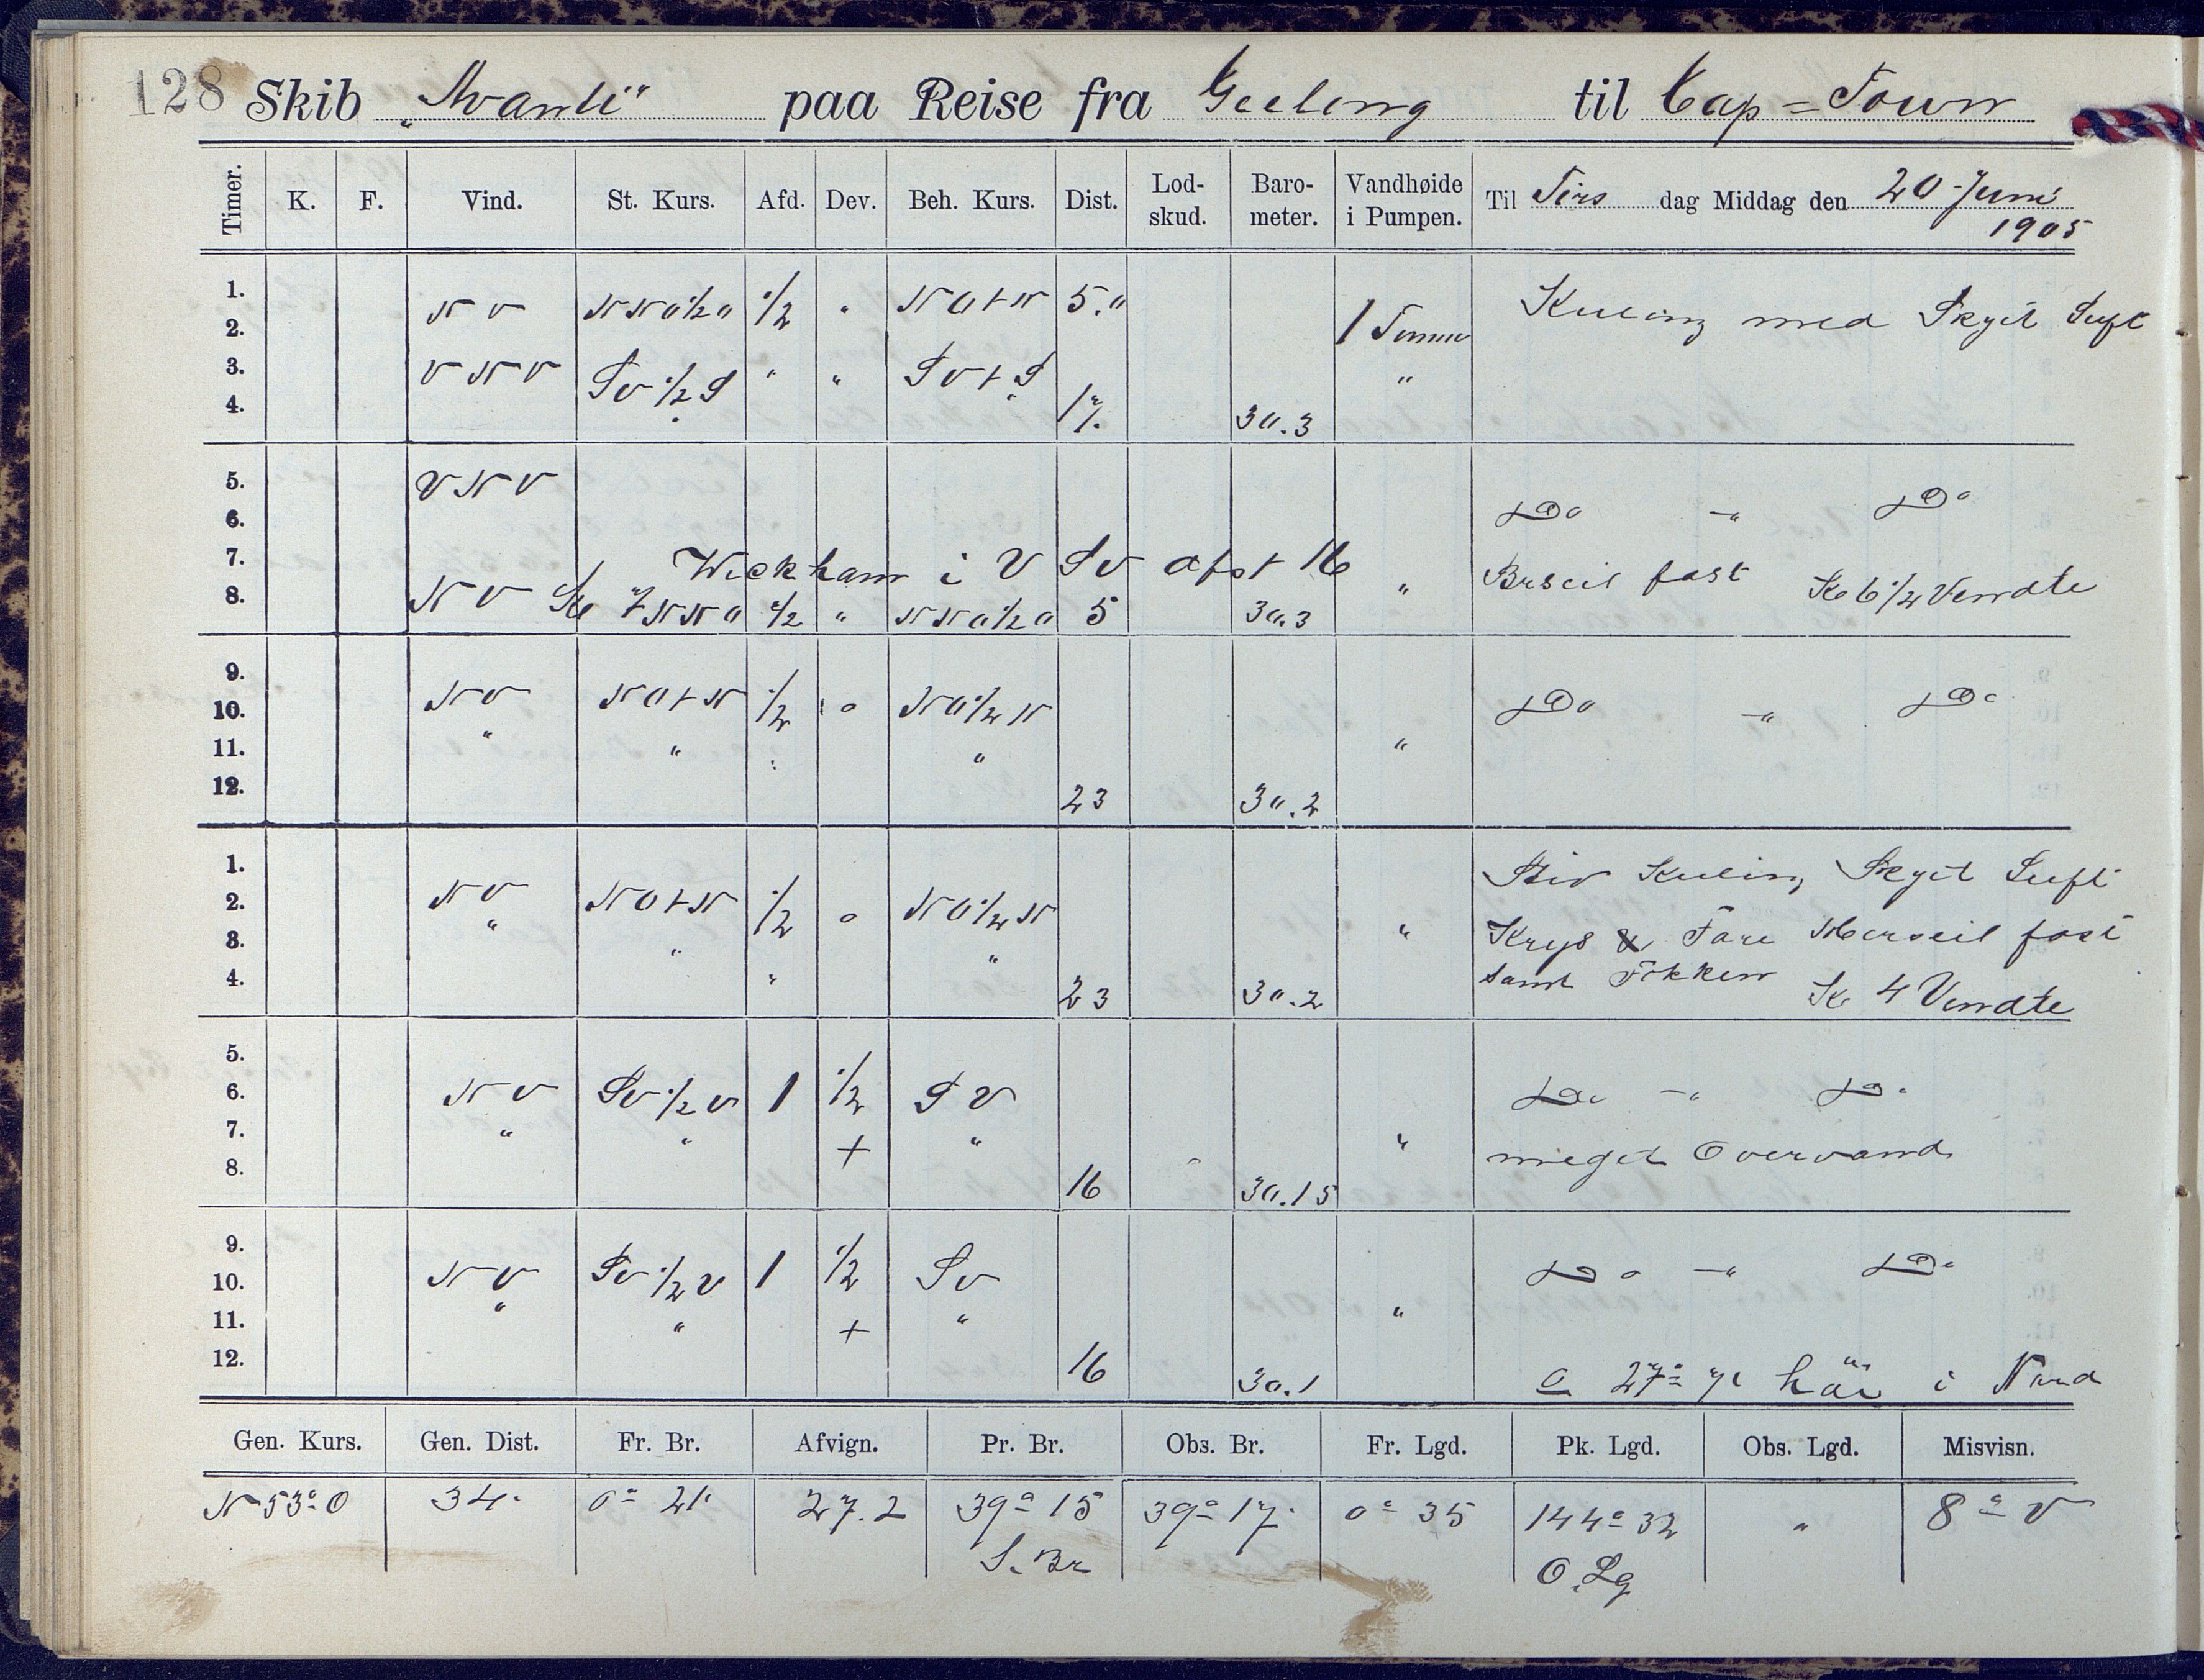 128 Skib „Avanti" paa Reise fra Geelong til Cap=Town
Timer. K. F. Vind. St. Kurs. Afd. Dev. Beh. Kurs. Dist. Lod-skud. Baro-meter. Vandhøide i Pumpen. Til Tirs dag Middag den 20 Juni
1905
1. NV NNO½O ½ " NOtN 5." 1 Tomme Kuling med Skyet Luft
2.
3. VNV SV½S " " SVtS "
4. 17. 30.3
5. VNV
6. Do -" Do
7. Wickham i V SV afst 16 " Brseil fast Kl 6½ Vendte
8. NV Kl 7 NNO ½ " NNO½O 5 30.3
9.
10. NV NOtN ½ o NO½N Do -" Do
11. " " " " "
12. 23 30.2
1. Stiv Kuling Skyet Luft
2. NV NOtN ½ o NO½N
3. " " " " Kryds & Fore Merseil fast
4. " 23 30.2 samt Fokken Kl 4 Vendte
5.
6. NV SV½V 1 ½ SV Do -" Do
7. " " + " " meget Overvand
8. 16 30.15
9.
10. NV SV½V 1 ½ SV Do -" Do
11. " " + " "
12. 16 30.1 i Nord
Gen. Kurs. Gen. Dist. Fr. Br. Afvign. Pr. Br. Obs. Br. Fr. Lgd. Pk. Lgd. Obs. Lgd. Misvisn.
N 53° O 34. 0° 21' 27.2 39° 15 39° 17. 0° 35 144° 32 " 8° V
S. Br O. Lg